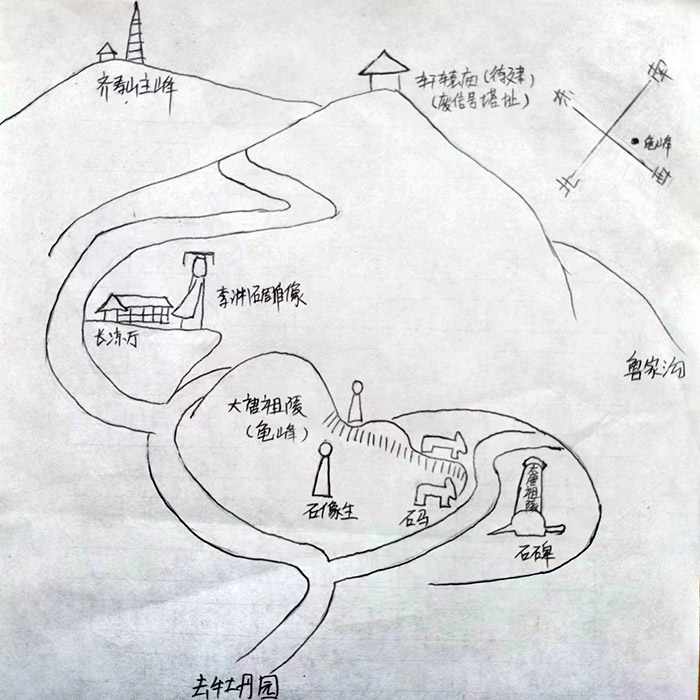 齐寿山主峰
轩辕庙（待建）
（废信号塔址）
东
南
龟峰
北
西
李渊石雕像
长凉厅
大唐祖陵
（龟峰）
鲁家沟
石像生
石马
大唐祖陵
石碑
去牡丹园